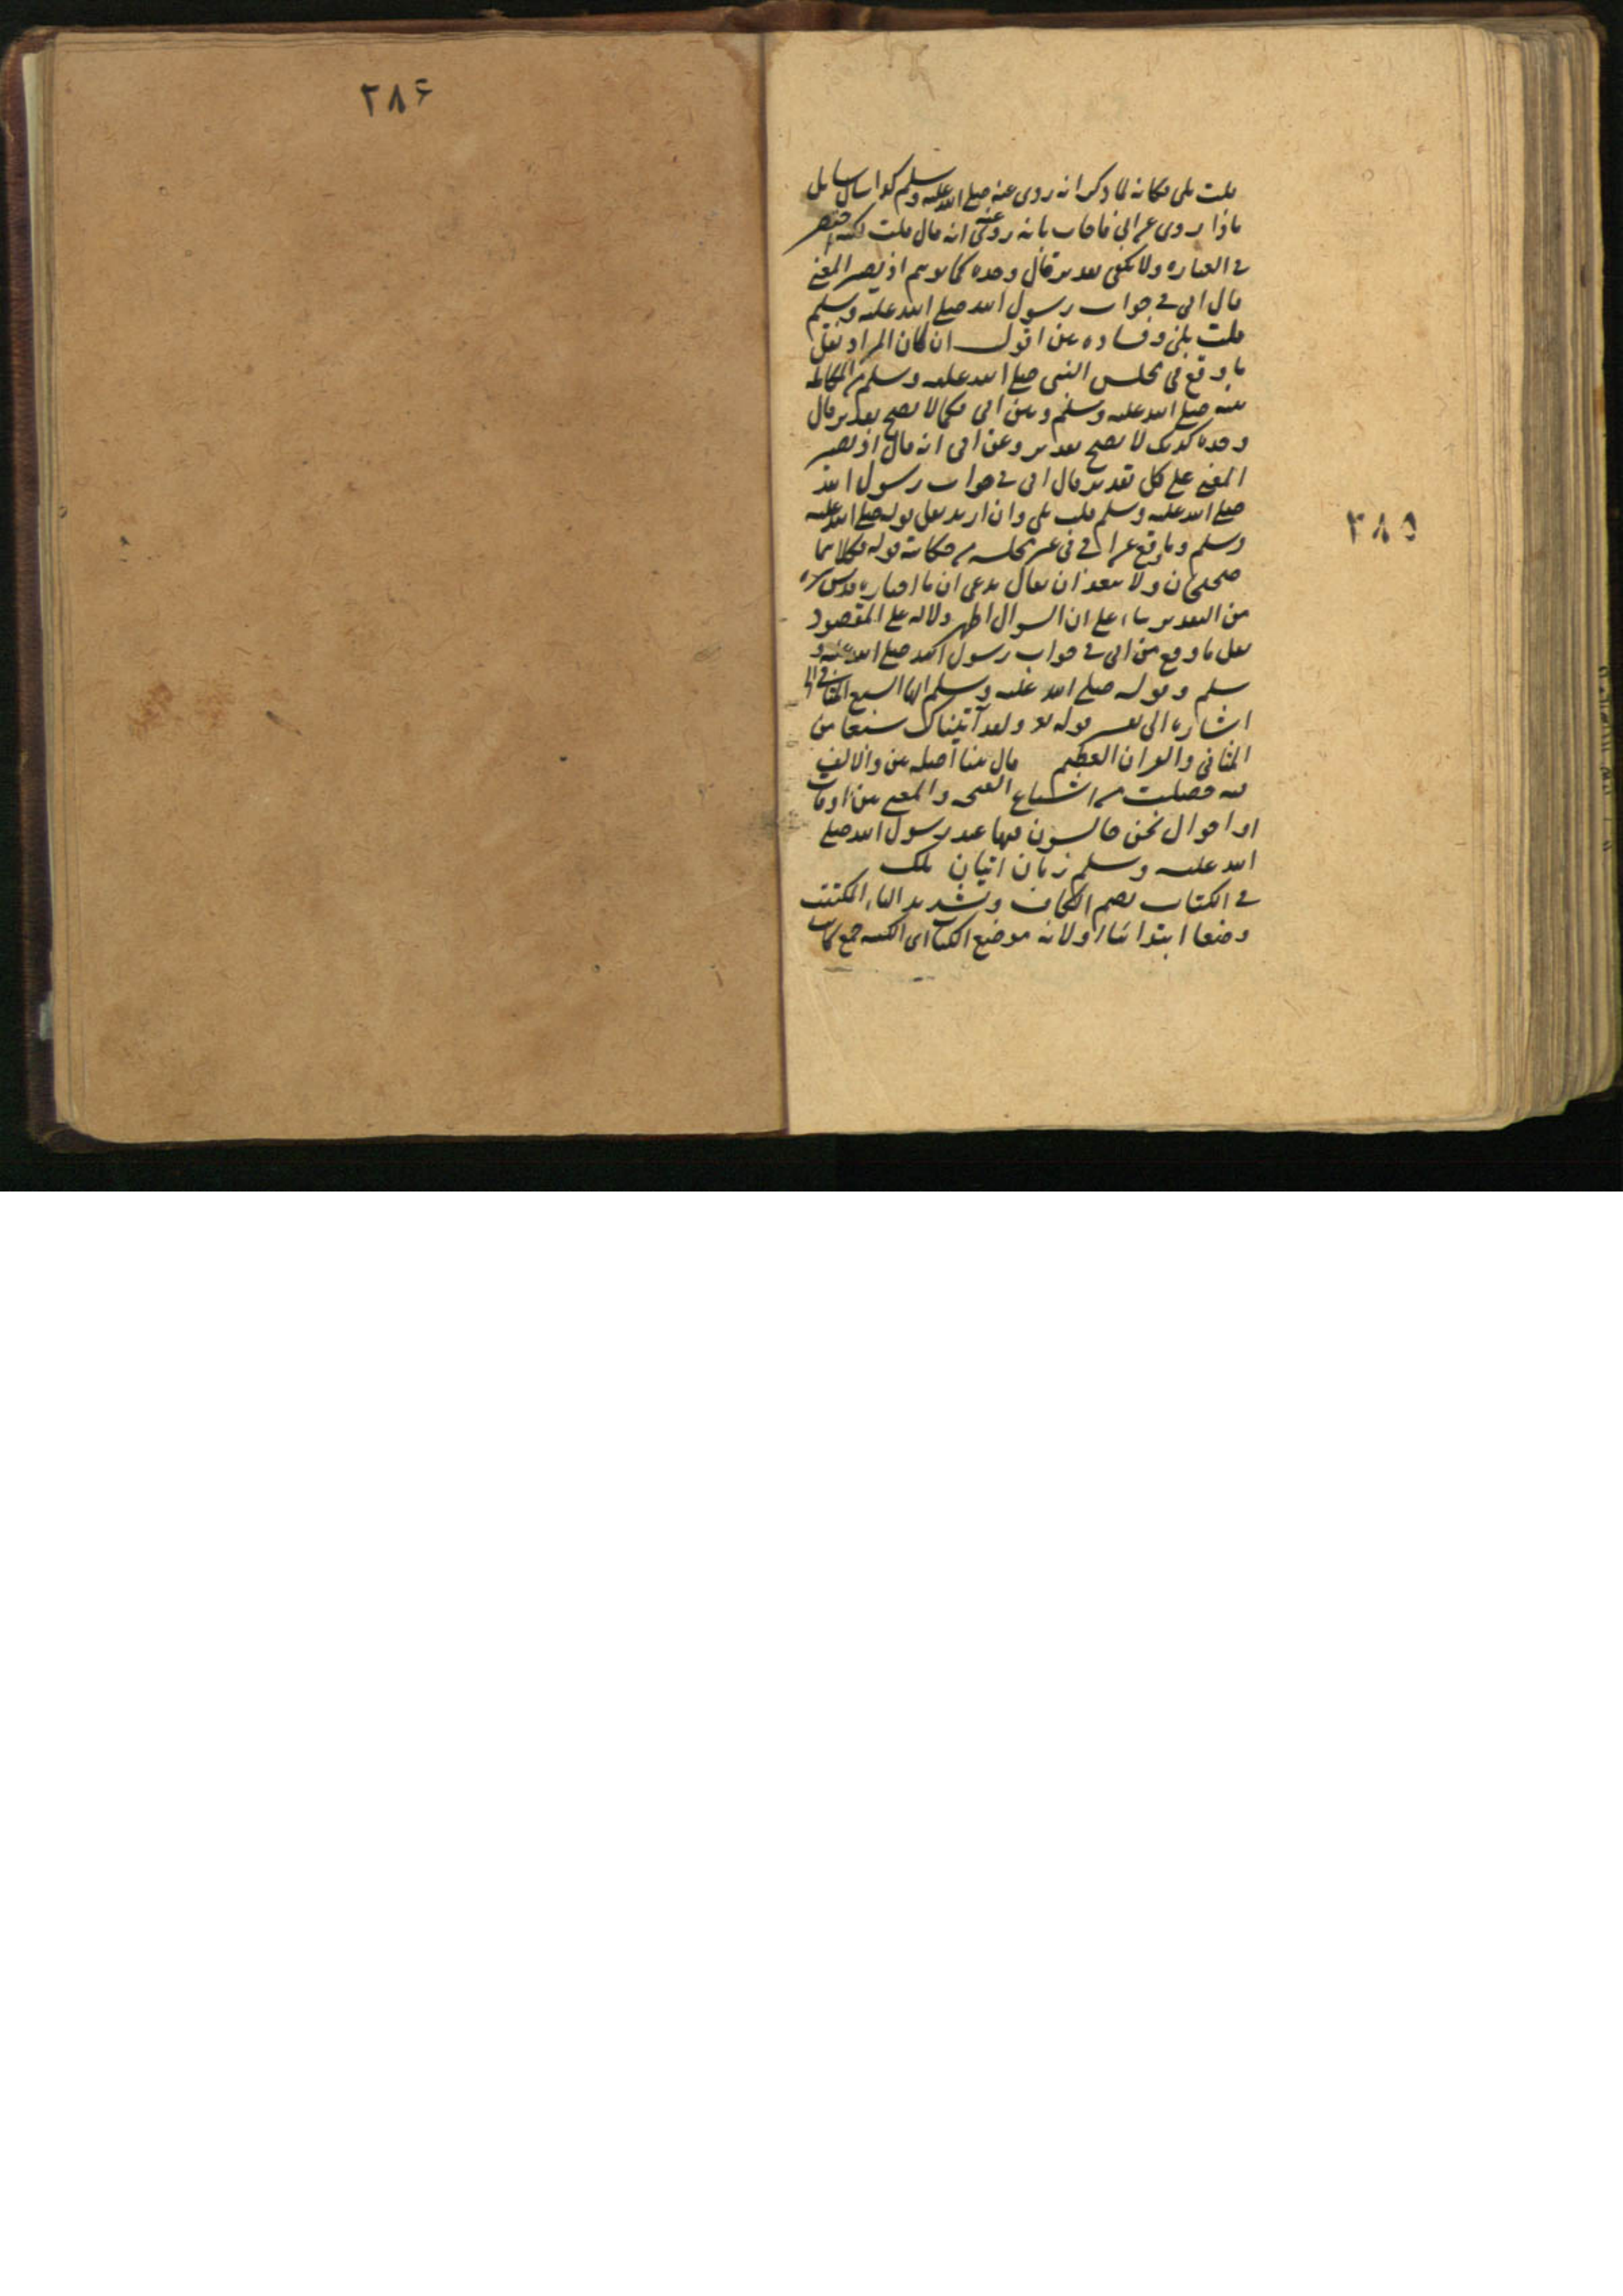 قلت بلى فكانه لما ذكر انه روى عنه صلى الله عليه وسلم كذا سأل سايل
ماذا روى عن ابى فاجاب بانه روى عنه انه قال قلت لكنه اختصر
فى العباره ولا يكفى تقدير قال وحده كما توهم اذ يصير المعنى
قال ابى فى جواب رسول الله صلى الله عليه وسلم
قلت بلى وفساده بين اقول ان كان المراد نقل
ما وقع فى مجلس النبى صلى الله عليه وسلم من المكالمه
بينه صلى الله عليه وسلم وبين ابى فكما لا يصح تقدير قال
وحده كذلك لا يصح تقدير وعن ابى انه قال اذ يصير
المعنى على كل تقدير قال ابى فى جواب رسول الله
صلى الله عليه وسلم قلت بلى وان اريد نقل قوله صلى الله عليه
وسلم وما وقع عن ابى فى غير مجلسه من حكاية قوله فكلاهما
صحيحان ولا يبعد ان يقال يدعى ان ما اختاره قدس سره
من التقدير بناء على ان السوال اظهر دلاله على المقصود
نقل ما وقع من ابى فى جواب رسول الله صلى الله عليه و
سلم وقوله صلى الله عليه وسلم انها السبع المثانى
اشاره الى تفسير قوله تع ولقد آتيناك سبعا من
المثانى والقران العظيم قال بينا اصله بين والالف
فيه حصلت من اشباع الفتحه والمعنى بين اوقات
او احوال نحن جالسون فيها عند رسول الله صلى
الله عليه وسلم زمان اتيان ملك
فى الكتاب بضم الكاف وتشديد التاء المكتب
وضعا ابتدائيا اولانه موضع الكتاب اى الكتبه جمع كاتب
٣٨٥
٣٨۶